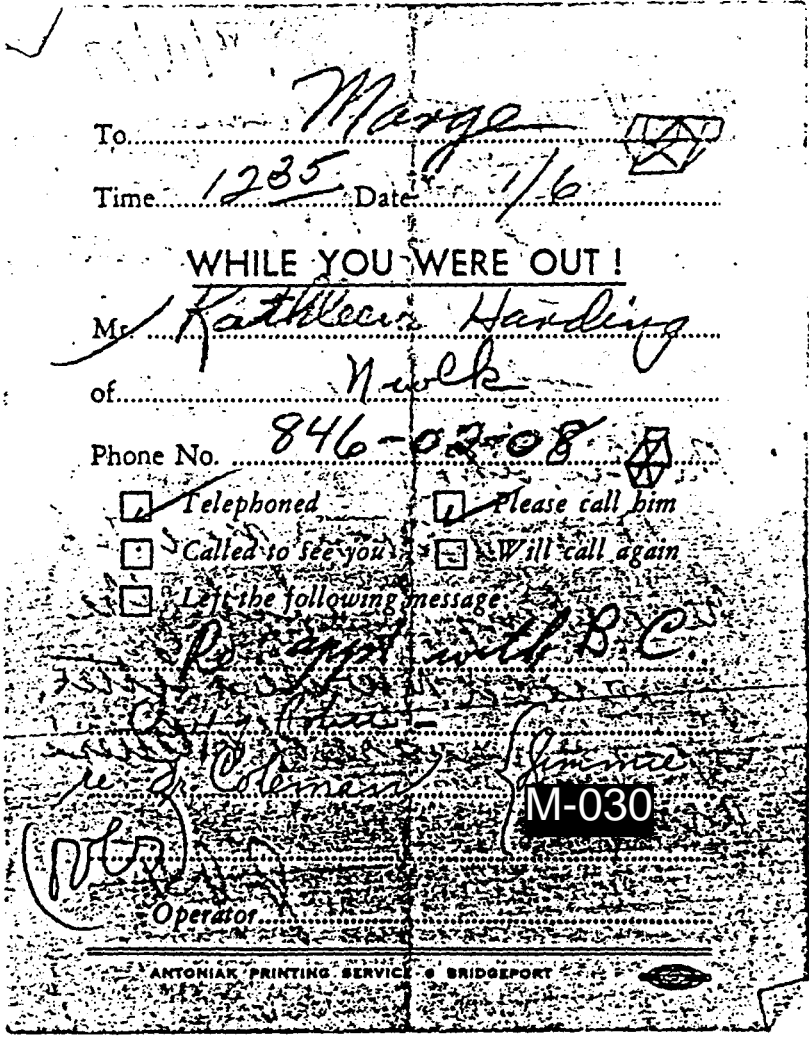 To Marge
Time 1235 Date 1/6
WHILE YOU WERE OUT !
Mr. Kathleen Harding
of Nwlk
Phone No. 846-02-08
Telephoned Please call him
Called to see you Will call again
Left the following message
Re: appt with B.C.
re Coleman Jimmie
M-030
Operator
ANTONIAK PRINTING SERVICE BRIDGEPORT